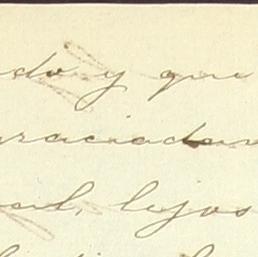 do y que
raciadam
al, lejos